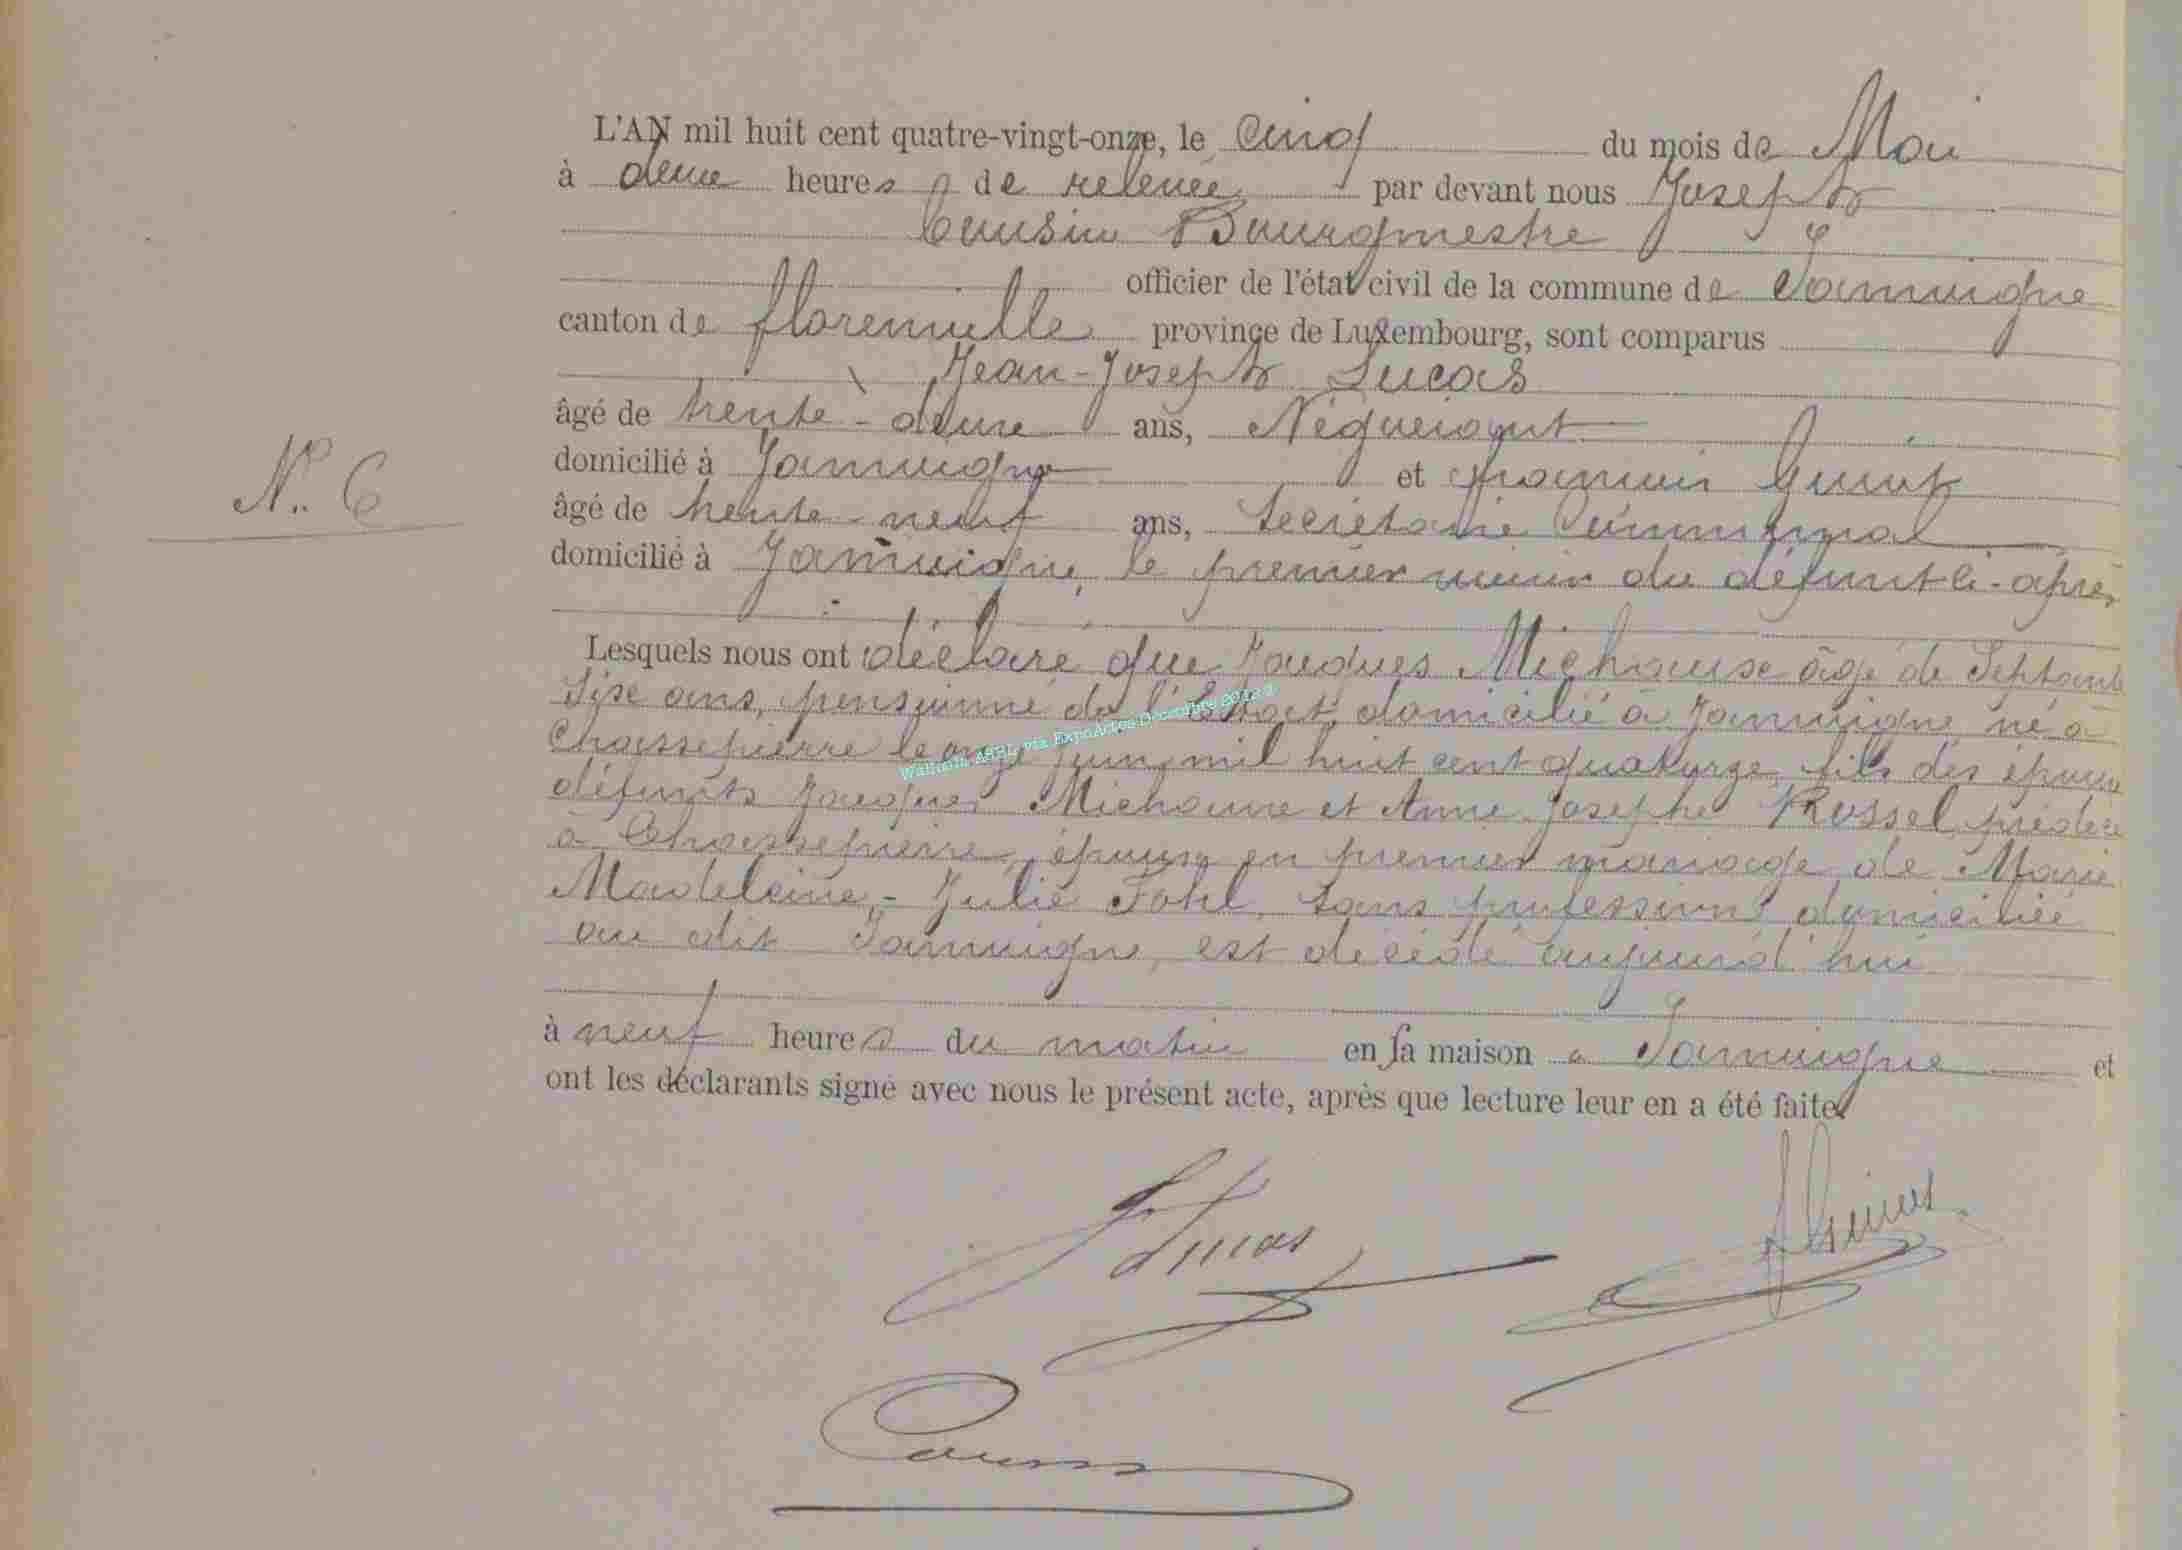 L'AN mil huit cent quatre-vingt-onze, le Cinq du mois de Mai
à deux heures de relevée par devant nous Joseph
Cousin Bourgmestre
officier de l'état civil de la commune de Jamoigne
canton de florenville province de Luxembourg, sont comparus
Jean-Joseph Lucas
âgé de trente-deux ans, Négociant
domicilié à Jamoigne et
N° 6
âgé de trente-neuf ans, Secrétaire Communal
domicilié à Jamoigne, le premier voisin du défunt ci-après
Lesquels nous ont déclaré que Jacques Michaux âgé de Septante
Six ans, pensionné de l'Etat, domicilié à Jamoigne, né à
Chassepierre le onze Juin mil huit cent quatorze, fils des époux
Walhain ASBL via ExpoActes Décembre
défunts Jacques Michaux et Anne Josephe Rossel
à Chassepierre, époux en premier mariage de Marie
Madeleine-Julie Fohl, sans profession, domiciliée
au dit Jamoigne, est décédé aujourd'hui
à neuf heures du matin en sa maison à Jamoigne et
ont les déclarants signé avec nous le présent acte, après que lecture leur en a été faite
Lucas
Cousin